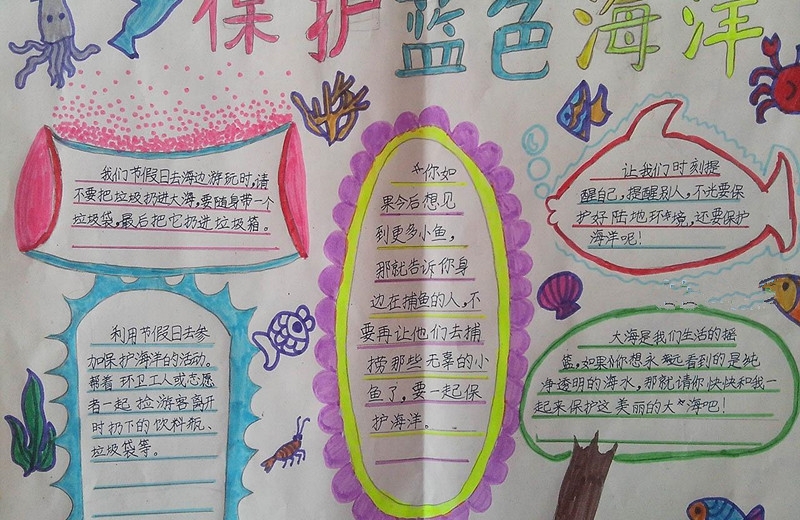 保护蓝色海洋
我们节假日去海边游玩时,请
不要把垃圾扔进大海,要随身带一个
垃圾袋,最后把它扔进垃圾箱。
利用节假日去参
加保护海洋的活动。
帮着环卫工人或志愿
者一起捡游客离开
时扔下的饮料瓶、
垃圾袋等。
你如
果今后想见
到更多小鱼,
那就告诉你身
边在捕鱼的人,不
要再让他们去捕
捞那些无辜的小
鱼了,要一起保
护海洋。
让我们时刻提
醒自己,提醒别人,不光要保
护好陆地环境,还要保护
海洋呢!
大海是我们生活的摇
篮,如果你想永远看到的是纯
净透明的海水,那就请你快快和我一
起来保护这美丽的大海吧!